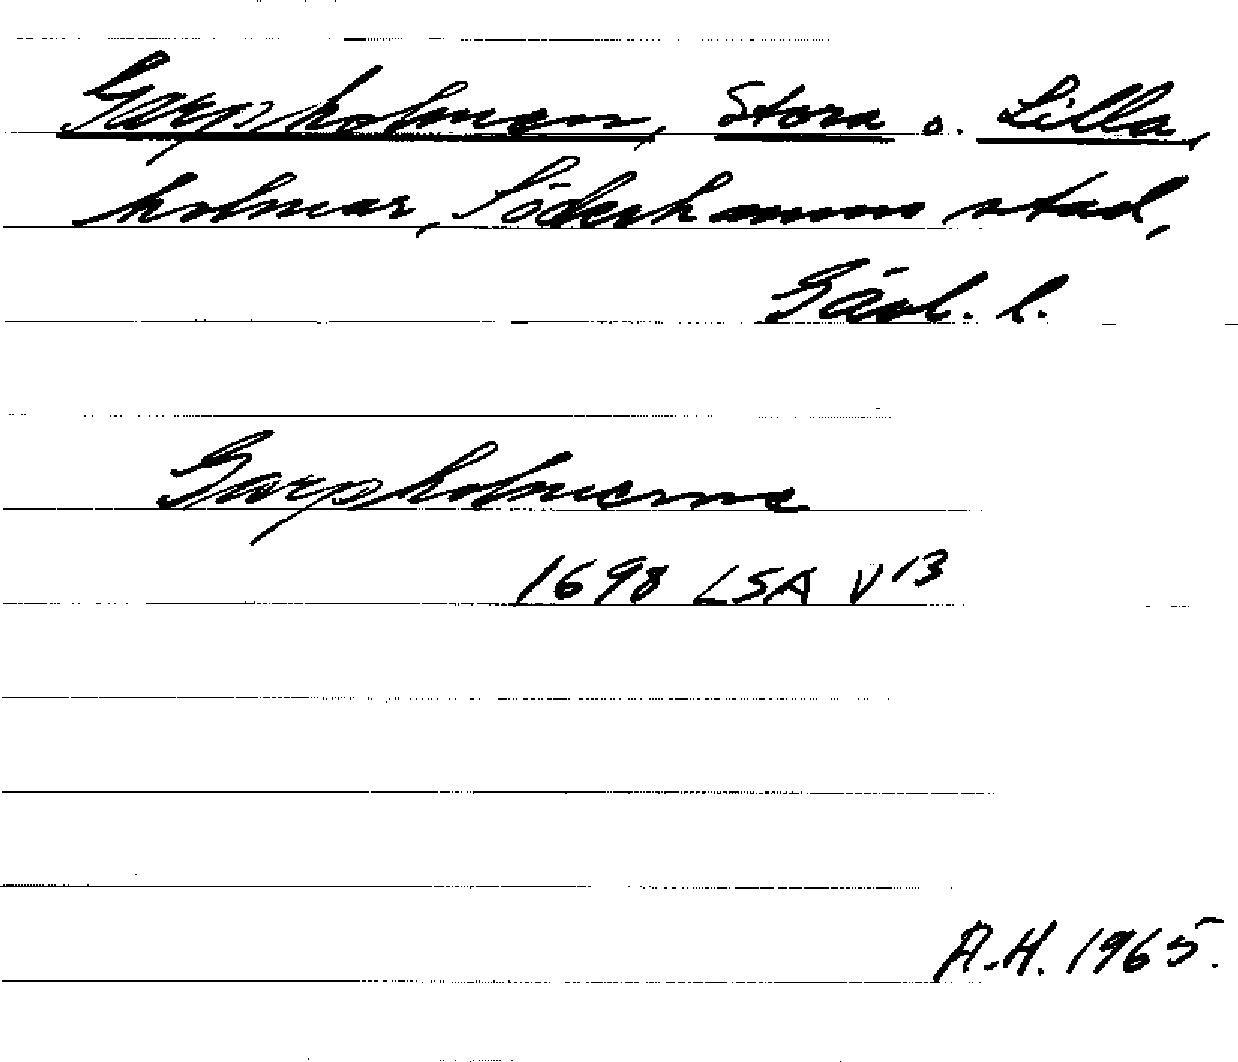 Garpholmen, Stora o. Lilla,
holmar, Söderhamns stad,
Gävl. l.
Garpholmerne
1698 LSA V 13
A.H. 1965.